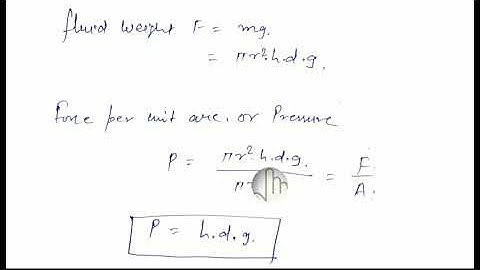 fluid weight F = mg.
= πr².h.d.g.
Force per unit are. or Pressure
P = πr².h.d.g. / π = F / A.
P = h.d.g.